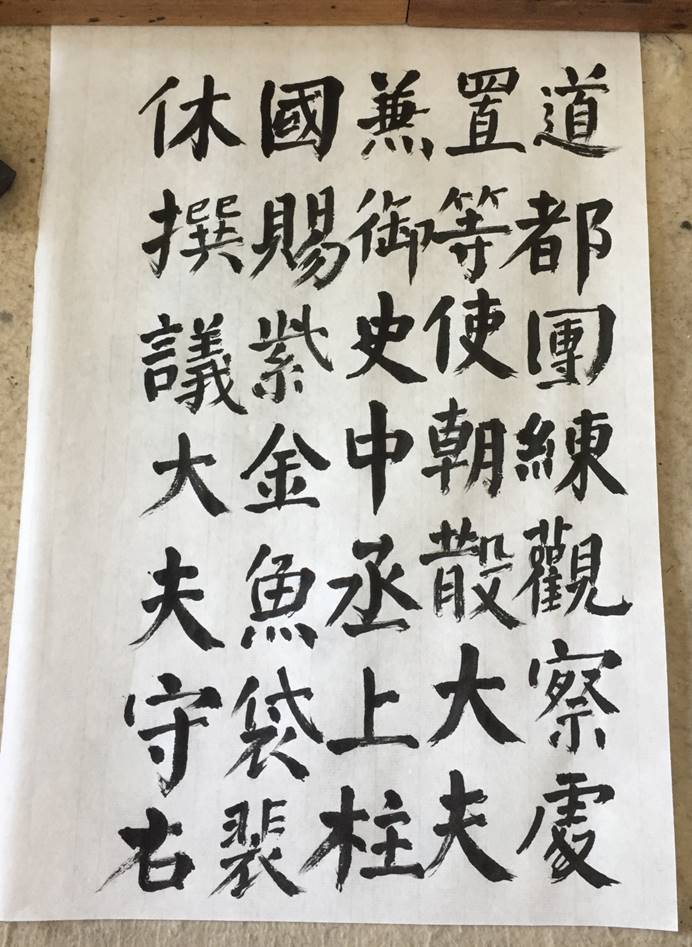 道都團練觀察處
置等使朝散大夫
兼御史中丞上柱
國賜紫金魚袋裴
休撰議大夫守右